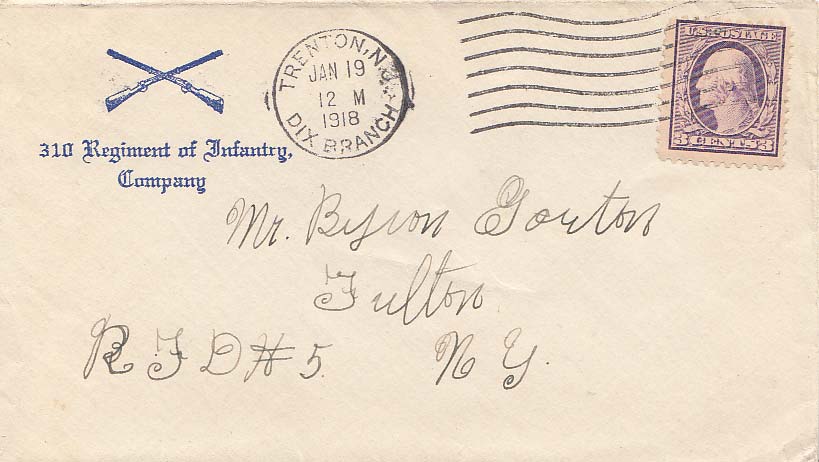 TRENTON, N.J.
JAN 19
12 M
1918
DIX BRANCH
U.S. POSTAGE
3 CENTS 3
310 Regiment of Infantry,
Company
Mr. Byron Gorton
Fulton
R F D # 5. N Y.